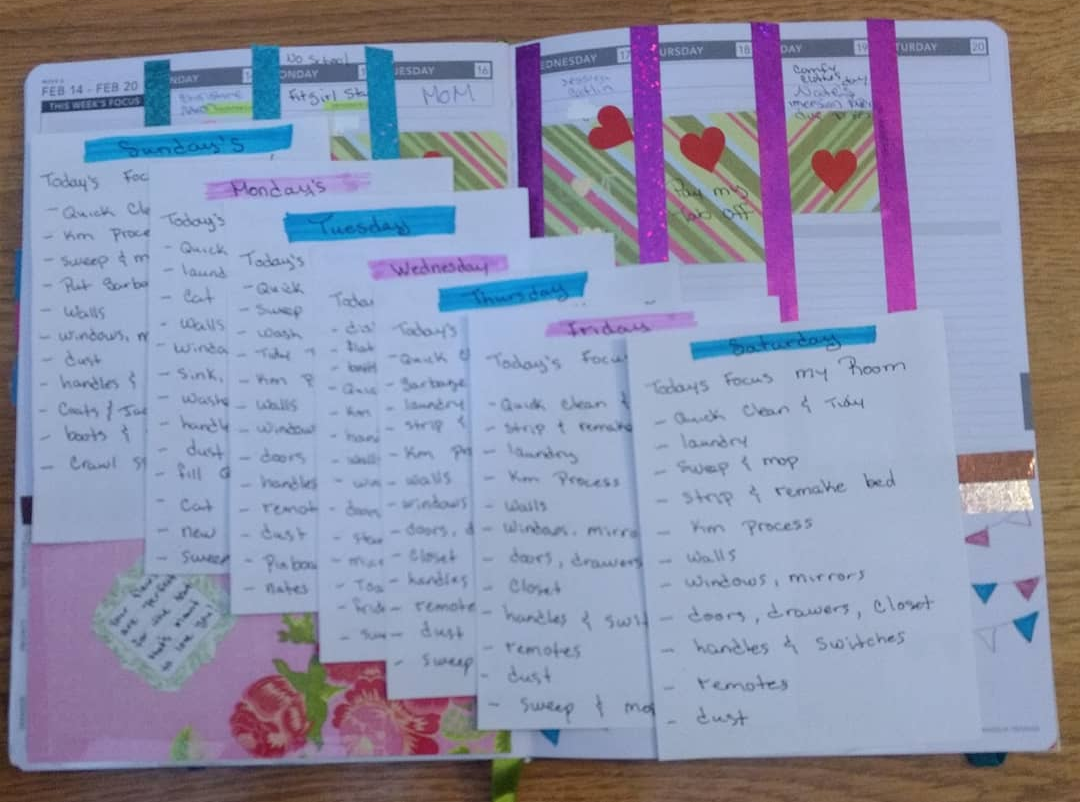 FEB 14 - FEB 20
THIS WEEK'S FOCUS
NDAY
No School
ONDAY
Fitgirl Sta
ESDAY 16
MOM
DNESDAY 17
Caitlin
URSDAY 18
Pay my
off
DAY 19
Comfy
Clothes day
Nate's
imersion
due
TURDAY 20
Sunday's
Today's Foc
- Quick Cle
- Km Proce
- Sweep & m
- Put Garba
- Walls
- windows, m
- dust
- handles &
- Coats / Jac
- boots &
- Crawl S
Monday's
Today's
- Quick
- laund
- Cat
- Walls
- Windo
- Sink,
- Wash
- handl
- dust
- fill
- Cat
- new
- Sweep
Tuesday
Today's
- Quick
- Sweep
- wash
- Tidy
- Km P
- Walls
- Window
- doors
- handles
- remot
- dust
- Pinboa
- notes
Wednesday
Today
- Quic
- Km
- han
- wall
- win
- doors
- Toa
- frid
- Sw
Thursday
Today's
- Quick C
- Garbage
- laundry
- strip &
- Km Pr
- Walls
- windows
- doors, d
- Closet
- handles
- remote
- dust
- Sweep
Friday
Today's Focu
- Quick Clean &
- Strip & remake
- laundry
- Km Process
- Walls
- Windows, mirro
- doors, drawers
- Closet
- handles & swit
- remotes
- dust
- Sweep & mo
Saturday
Todays Focus my Room
- Quick Clean & Tidy
- laundry
- Sweep & mop
- Strip & remake bed
- Km Process
- Walls
- Windows, mirrors
- doors, drawers, Closet
- handles & Switches
- remotes
- dust